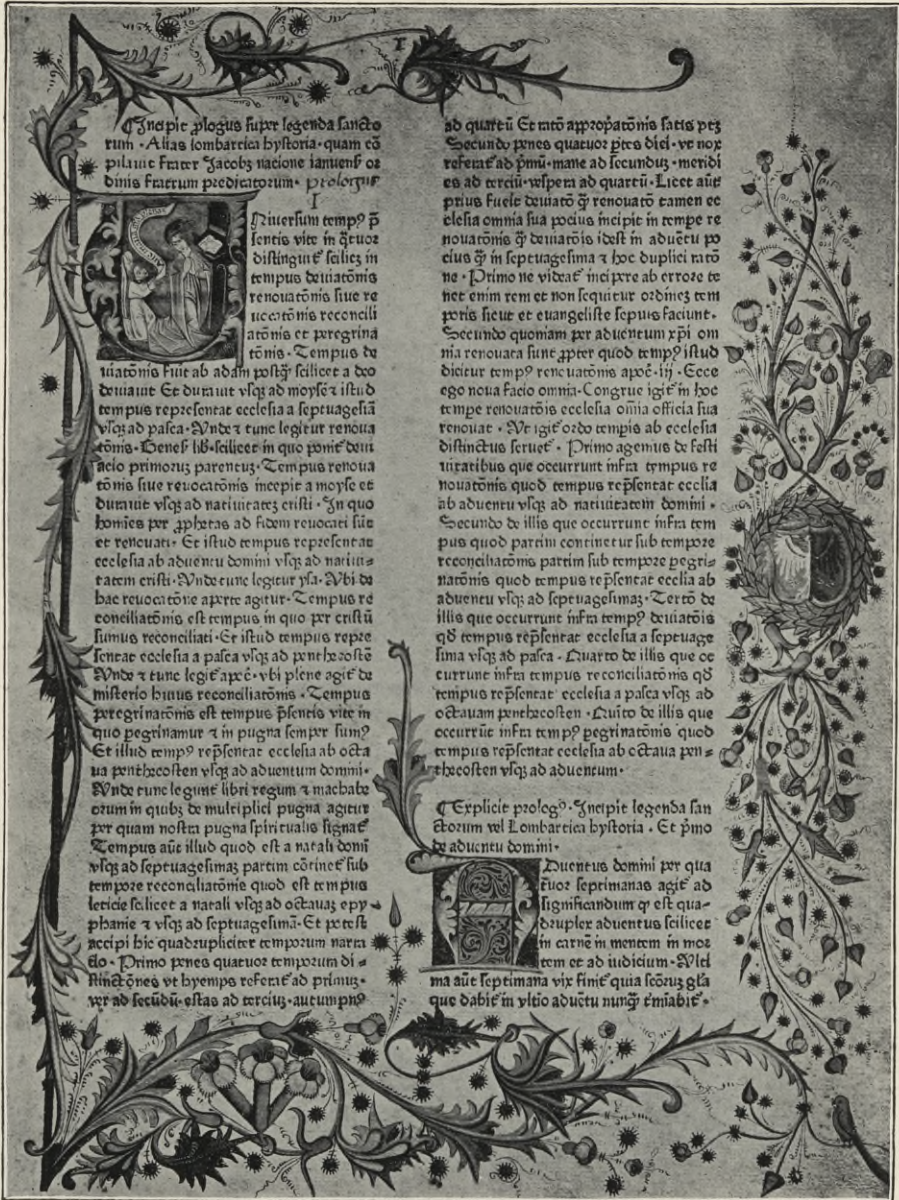 I
¶Incipit ꝓlogus super legenda sancto
rum · Alias lombartica hystoria · quam cō
pilauit frater Jacobꝫ nacione ianuenẜ or
dinis fratrum predicatorum · prologus
I
Niuersum tempꝰ p̄
sentis vite in q̄tuor
distinguit᷑ scilicꝫ in
tempus deuiatōnis
renouatōnis siue re
uocatōnis reconcili
atōnis et peregrina
tōnis · Tempus de
uiatōnis fuit ab adam postꝙ̄ scilicet a deo
deuiauit Et durauit vsqꝫ ad moysē ⁊ istud
tempus representat ecclesia a septuagesīa
vsqꝫ ad pasca · Vnde ⁊ tunc legitur renoua
tōnis · Genesẜ lib̄ · scilicet in quo ponit᷑ deui
acio primoruꝫ parentuꝫ · Tempus renoua
tōnis siue reuocatōnis incepit a moyse et
durauit vsqꝫ ad natiuitatēꝫ cristi · In quo
homīes per ꝓphetas ad fidem reuocati sūt
et renouati · Et istud tempus representat
ecclesia ab aduentu domini vsqꝫ ad natiui⸗
tatem cristi · Vnde tunc legitur ysa · Vbi de
hac reuocatōne aperte agitur · Tempus re
conciliatōnis est tempus in quo per cristū
sumus reconciliati · Et istud tempus repre
sentat ecclesia a pasca vsqꝫ ad penthecostē
Vnde ⁊ tunc legit᷑ apoc̄ · vbi plene agit᷑ de
misterio huius reconciliatōnis · Tempus
peregrinatōnis est tempus p̄sentis vite in
quo pegrinamur ⁊ in pugna semper sumꝰ
Et illud tempꝰ rep̄sentat ecclesia ab octa
ua penthecosten vsqꝫ ad aduentum domini ·
Vnde tunc legunt᷑ libri regum ⁊ machabe
orum in quibꝫ de multiplici pugna agitur
per quam nostra pugna spiritualis signat᷑
Tempus aūt illud quod est a natali domī
vsqꝫ ad septuagesimaꝫ partim cōtinet᷑ sub
tempore reconciliatōnis quod est tempus
leticie scilicet a natali vsqꝫ ad octauaꝫ epy⸗
phanie ⁊ vsqꝫ ad septuagesimā · Et potest
accipi hic quadrupliciter temporum naria
tio · Primo penes quatuor temporum di⸗
stinctōnes vt hyemps referat᷑ ad primuꝫ ·
ver ad secūdū · estas ad terciuꝫ · autumpnꝰ
ad quartū Et ratō appropatōnis satis ptꝫ
Secundo penes quatuor p̄tes diei · vt nox
referat᷑ ad p̄mū · mane ad secunduꝫ · meridi
es ad terciū · vespera ad quartū · Licet aūt
prius fuerit deuiatō ꝙ̄ renouatō tamen ec
clesia omnia sua pocius incipit in tempe re
nouatōnis ꝙ̄ deuiatōīs idest in aduētu po
cius ꝙ̄ in septuagesima ⁊ hoc duplici ratō
ne · Primo ne videat᷑ incipere ab errore te
net enim rem et non sequitur ordineꝫ tem
poris sicut et euangeliste sepius faciunt ·
Secundo quoniam per aduentum xp̄i om
nia renouata sunt ꝓpter quod tempꝰ istud
dicitur tempꝰ renouatōnis apoc̄ · iij · Ecce
ego noua facio omnia · Congrue igit᷑ in hoc
tempe renouatōis ecclesia omīa officia sua
renouat · Vt igit᷑ ordo tempis ab ecclesia
distinctus seruet᷑ · Primo agemus de festi
uitatibus que occurrunt infra tempus re
nouatōnis quod tempus rep̄sentat ecclīa
ab aduentu vsqꝫ ad natiuitatem domini ·
Secundo de illis que occurrunt infra tem
pus quod partim continetur sub tempore
reconciliatōnis partim sub tempore pegri⸗
natōnis quod tempus rep̄sentat ecclīa ab
aduentu vsqꝫ ad septuagesimaꝫ · Tertō de
illis que occurrunt infra tempꝰ deuiatōīs
qd̄ tempus rep̄sentat ecclesia a septuage
sima vsqꝫ ad pasca · Quarto de illis que oc
currunt infra tempus reconciliatōnis qd̄
tempus rep̄sentat ecclesia a pasca vsqꝫ ad
octauam penthecosten · Quīto de illis que
occurrūt infra tempꝰ pegrinatōnis quod
tempus rep̄sentat ecclesia ab octaua pen⸗
thecosten vsqꝫ ad aduentum ·
¶Explicit prologꝰ · Incipit legenda san
ctorum vel Lombartica hystoria · Et p̄mo
de aduentu domini ·
ADuentus domini per qua
tuor septimanas agit᷑ ad
significandum ꝙ est qua⸗
druplex aduentus scilicet
in carnē in mentem in mor
tem et ad iudicium · Vlti
ma aūt septimana vix finit᷑ quia scōruꝫ gl̄a
que dabit᷑ in vltīo aduētu nunꝙ̄ t᷑mīabit᷑ ·